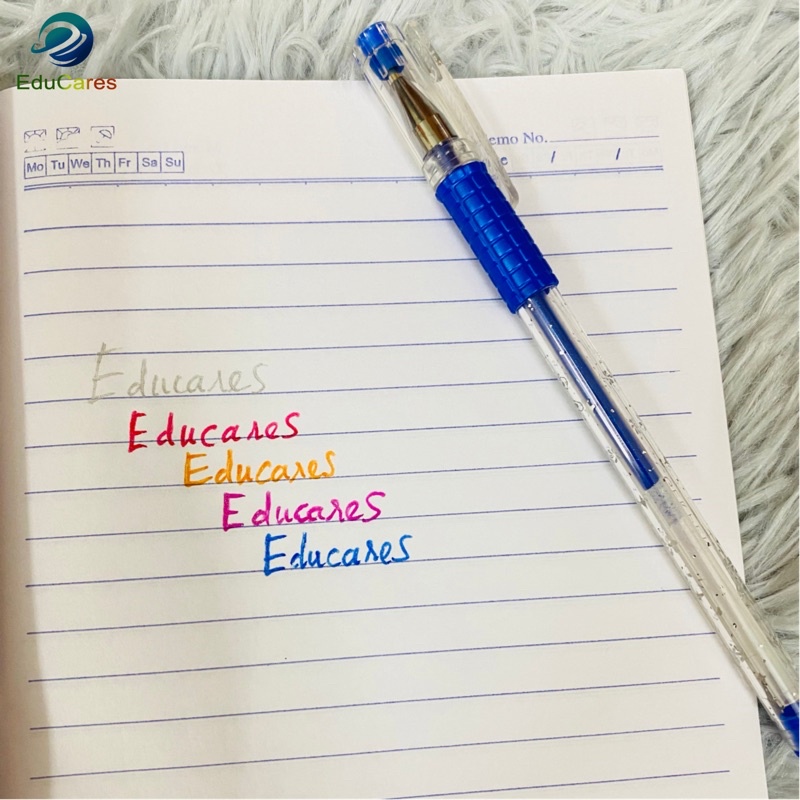 EduCares
Mo Tu We Th Fr Sa Su
emo No.
e / /
Educares
Educares
Educares
Educares
Educares